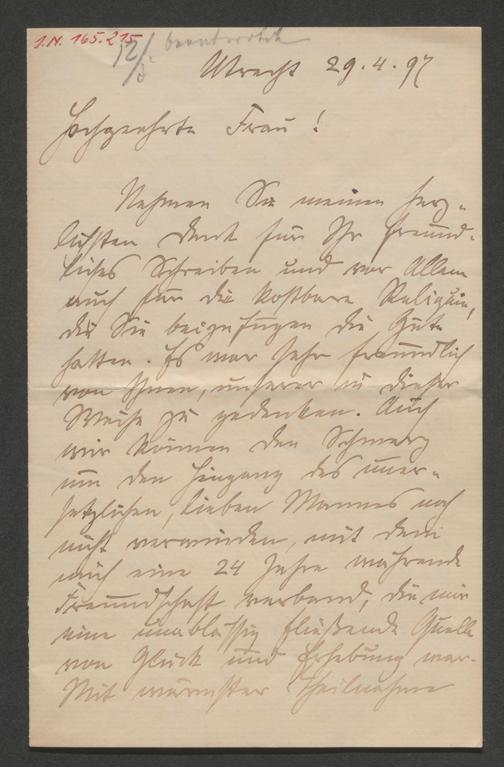 I.N. 165.215
12/5 beantwortet
Utrecht 29.4.97
Hochgeehrte Frau!
Nehmen Sie meinen herz-
lichsten Dank für Ihr freund-
liches Schreiben und vor Allem
auch für die kostbare Reliquie,
die Sie beizufügen die Güte
hatten. Es war sehr freundlich
von Ihnen, unserer in dieser
Weise zu gedenken. Auch
wir können den Schmerz
um den Hingang des uner-
setzlichen, lieben Mannes noch
nicht verwinden, mit dem
mich eine 24 Jahre währende
Freundschaft verband, die mir
eine unablässig fließende Quelle
von Glück und Erhebung war.
Mit wärmster Theilnahme